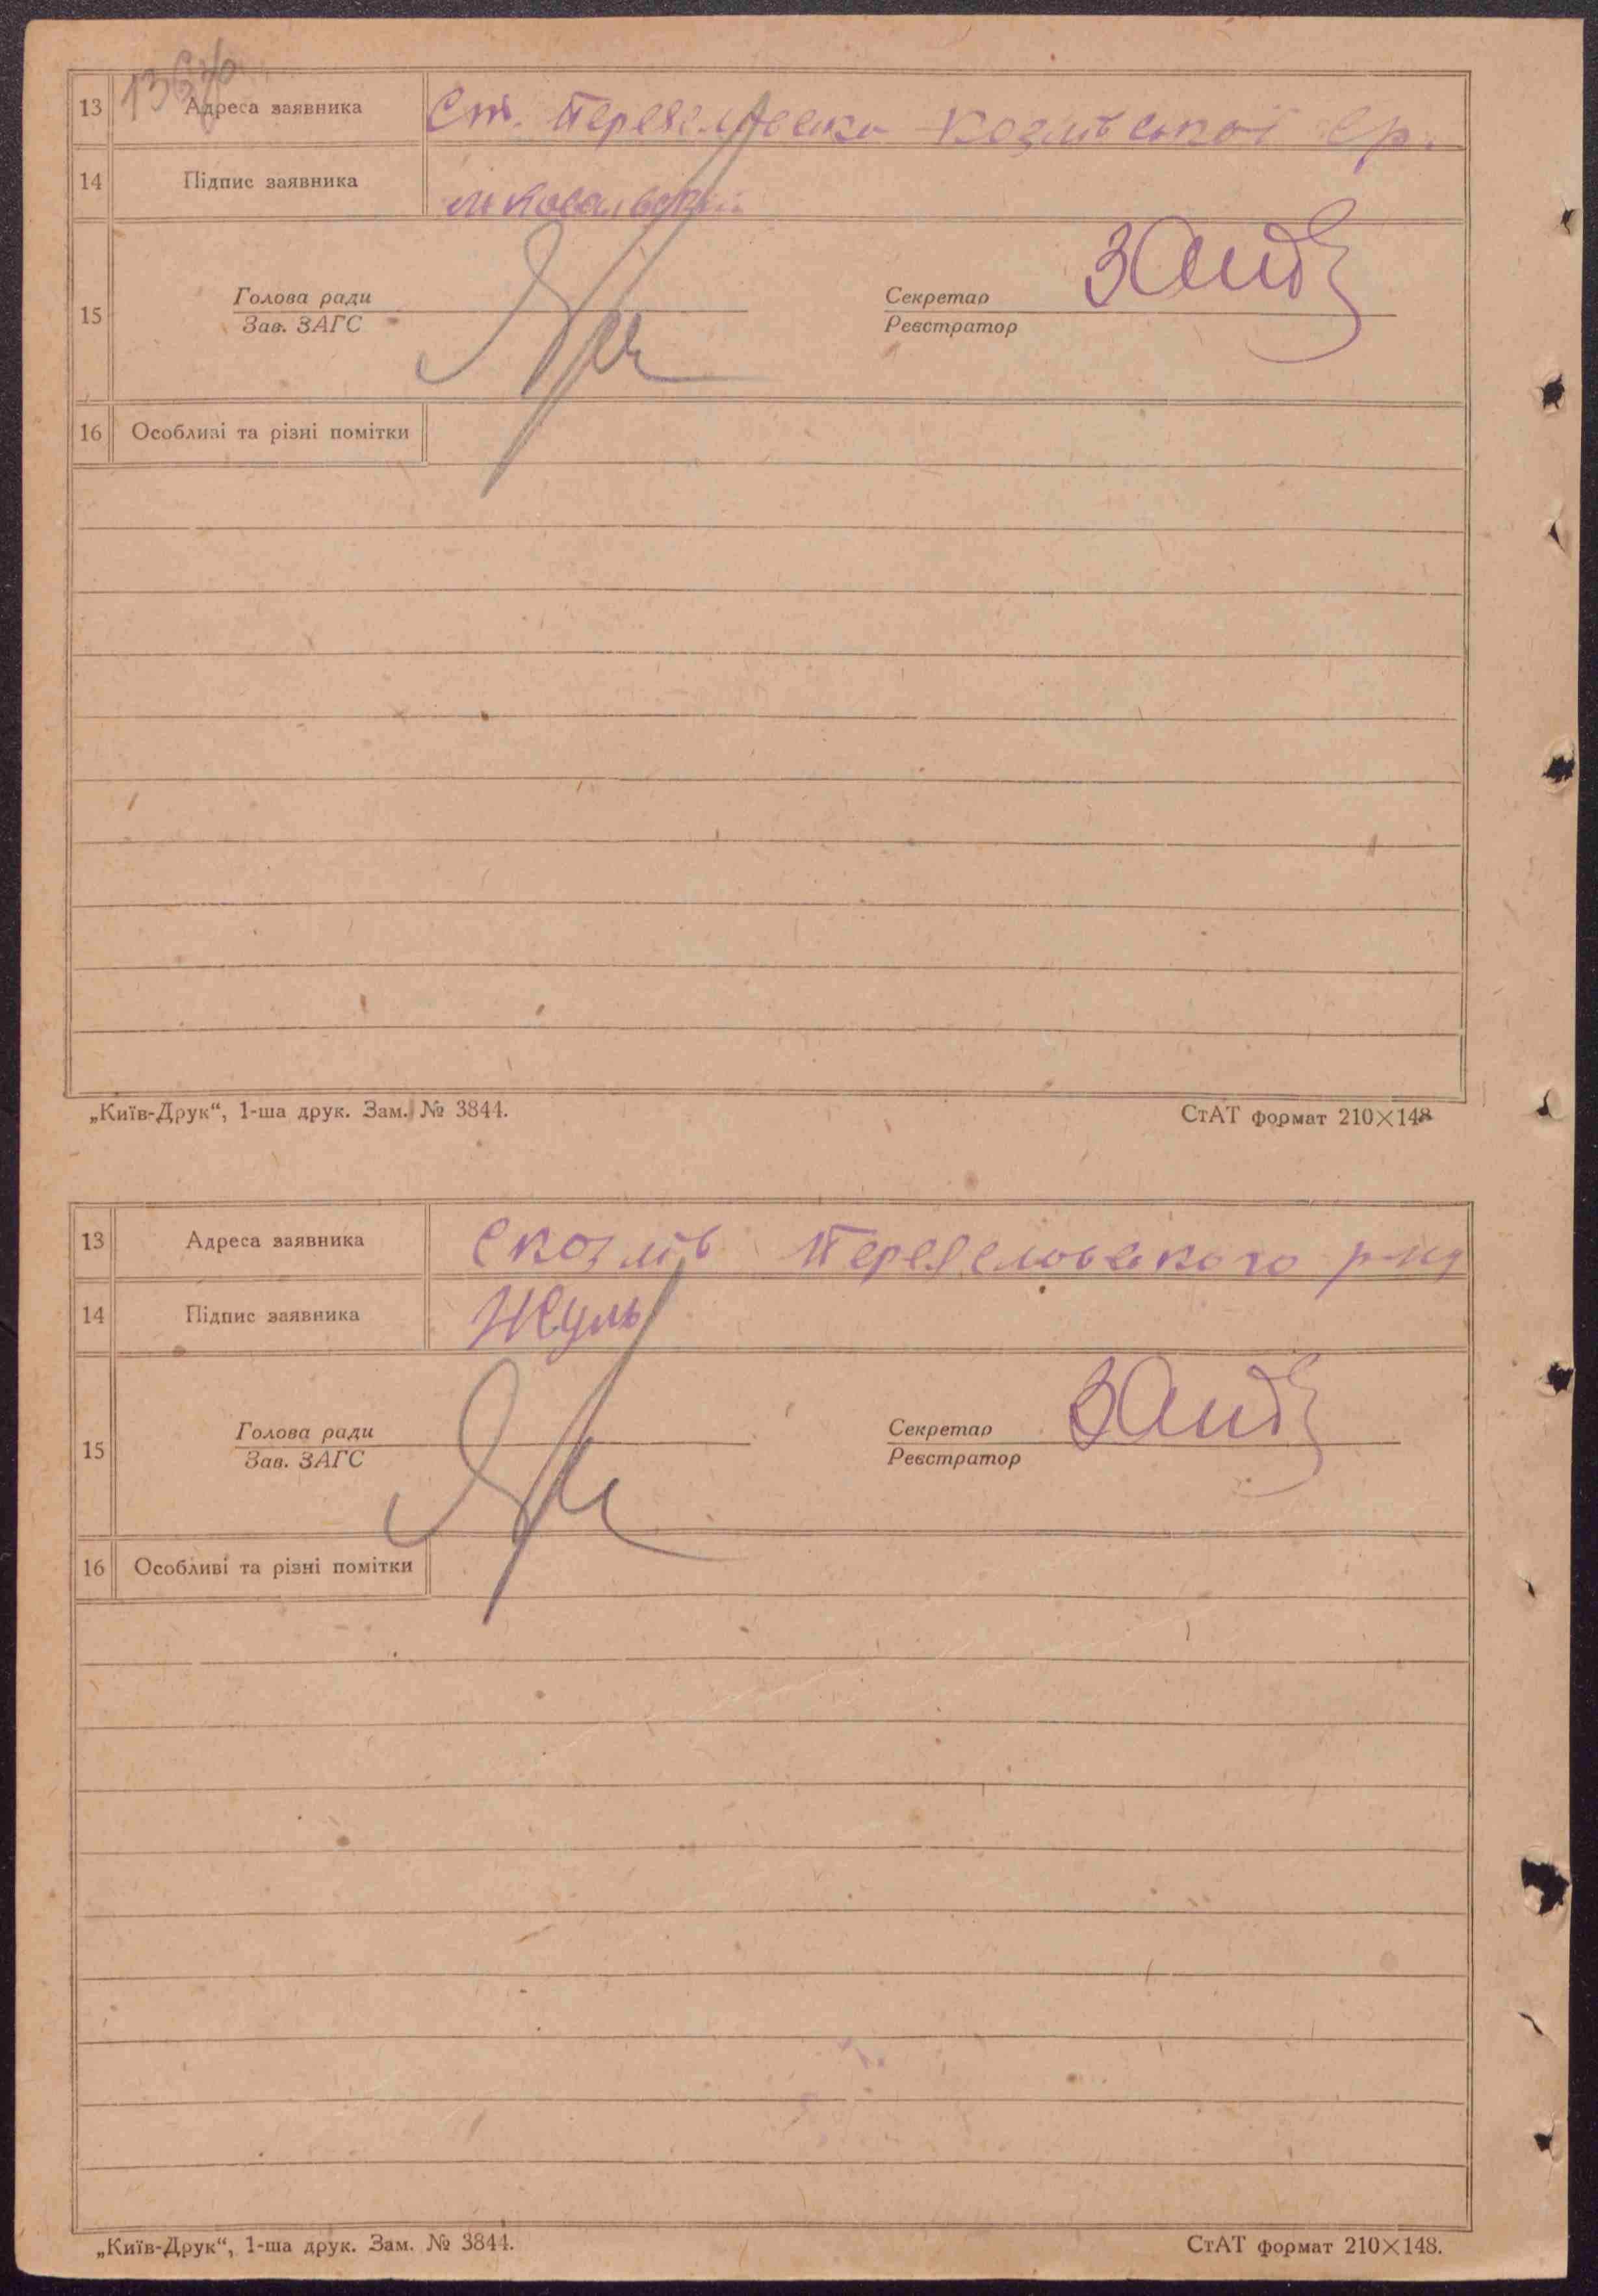 13 Адреса заявника Ст. Переяславська Козлівської с/р.
14 Підпис заявника Ковальський
15 Голова ради Секретар
Зав. ЗАГС Реєстратор
16 Особливі та різні помітки
„Київ-Друк“, 1-ша друк. Зам. № 3844. СтАТ формат 210×148
13 Адреса заявника с Козлів Переяславського р-ну
14 Підпис заявника Жуль
15 Голова ради Секретар
Зав. ЗАГС Реєстратор
16 Особливі та різні помітки
„Київ-Друк“, 1-ша друк. Зам. № 3844. СтАТ формат 210×148.